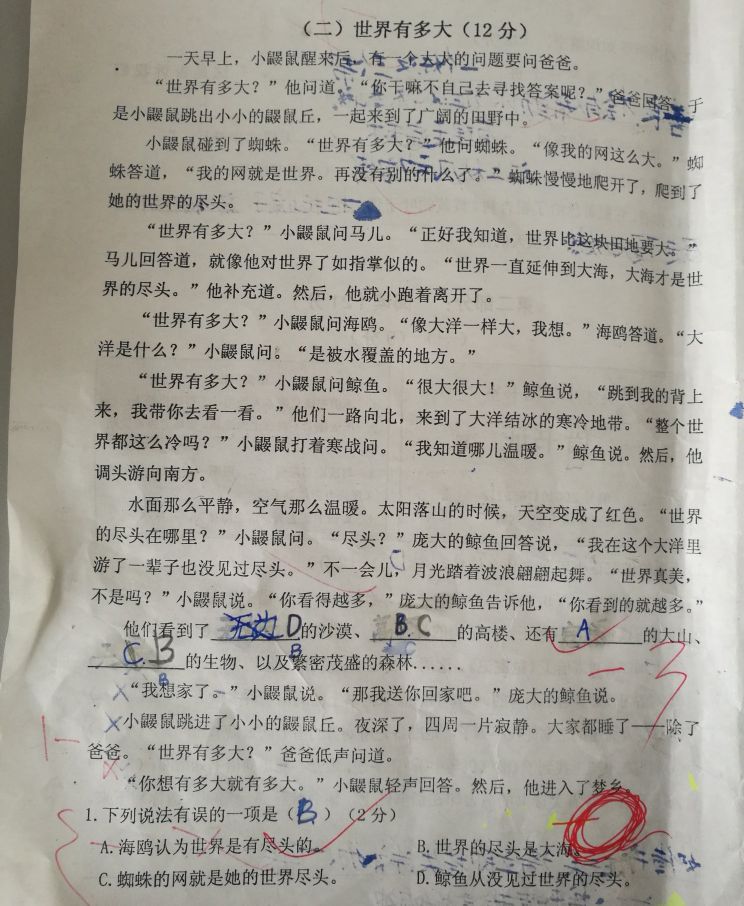 （二）世界有多大（12分）
一天早上，小鼹鼠醒来后，有一个大大的问题要问爸爸。
“世界有多大？”他问道。“你干嘛不自己去寻找答案呢？”爸爸回答。于
是小鼹鼠跳出小小的鼹鼠丘，一起来到了广阔的田野中。
小鼹鼠碰到了蜘蛛。“世界有多大？”他问蜘蛛。“像我的网这么大。”蜘
蛛答道，“我的网就是世界。再没有别的什么了。”蜘蛛慢慢地爬开了，爬到了
她的世界的尽头。
“世界有多大？”小鼹鼠问马儿。“正好我知道，世界比这块田地要大。”
马儿回答道，就像他对世界了如指掌似的。“世界一直延伸到大海，大海才是世
界的尽头。”他补充道。然后，他就小跑着离开了。
“世界有多大？”小鼹鼠问海鸥。“像大洋一样大，我想。”海鸥答道。“大
洋是什么？”小鼹鼠问。“是被水覆盖的地方。”
“世界有多大？”小鼹鼠问鲸鱼。“很大很大！”鲸鱼说，“跳到我的背上
来，我带你去看一看。”他们一路向北，来到了大洋结冰的寒冷地带。“整个世
界都这么冷吗？”小鼹鼠打着寒战问。“我知道哪儿温暖。”鲸鱼说。然后，他
调头游向南方。
水面那么平静，空气那么温暖。太阳落山的时候，天空变成了红色。“世界
的尽头在哪里？”小鼹鼠问。“尽头？”庞大的鲸鱼回答说，“我在这个大洋里
游了一辈子也没见过尽头。”不一会儿，月光踏着波浪翩翩起舞。“世界真美，
不是吗？”小鼹鼠说。“你看得越多，”庞大的鲸鱼告诉他，“你看到的就越多。”
他们看到了 D 的沙漠、 B.C 的高楼、还有 A 的大山、
C. B 的生物、以及繁密茂盛的森林……
“我想家了。”小鼹鼠说。“那我送你回家吧。”庞大的鲸鱼说。
小鼹鼠跳进了小小的鼹鼠丘。夜深了，四周一片寂静。大家都睡了——除了
爸爸。“世界有多大？”爸爸低声问道。
“你想有多大就有多大。”小鼹鼠轻声回答。然后，他进入了梦乡。
1.下列说法有误的一项是（ B ）（2分）
A.海鸥认为世界是有尽头的。 B.世界的尽头是大海。
C.蜘蛛的网就是她的世界尽头。 D.鲸鱼从没见过世界的尽头。